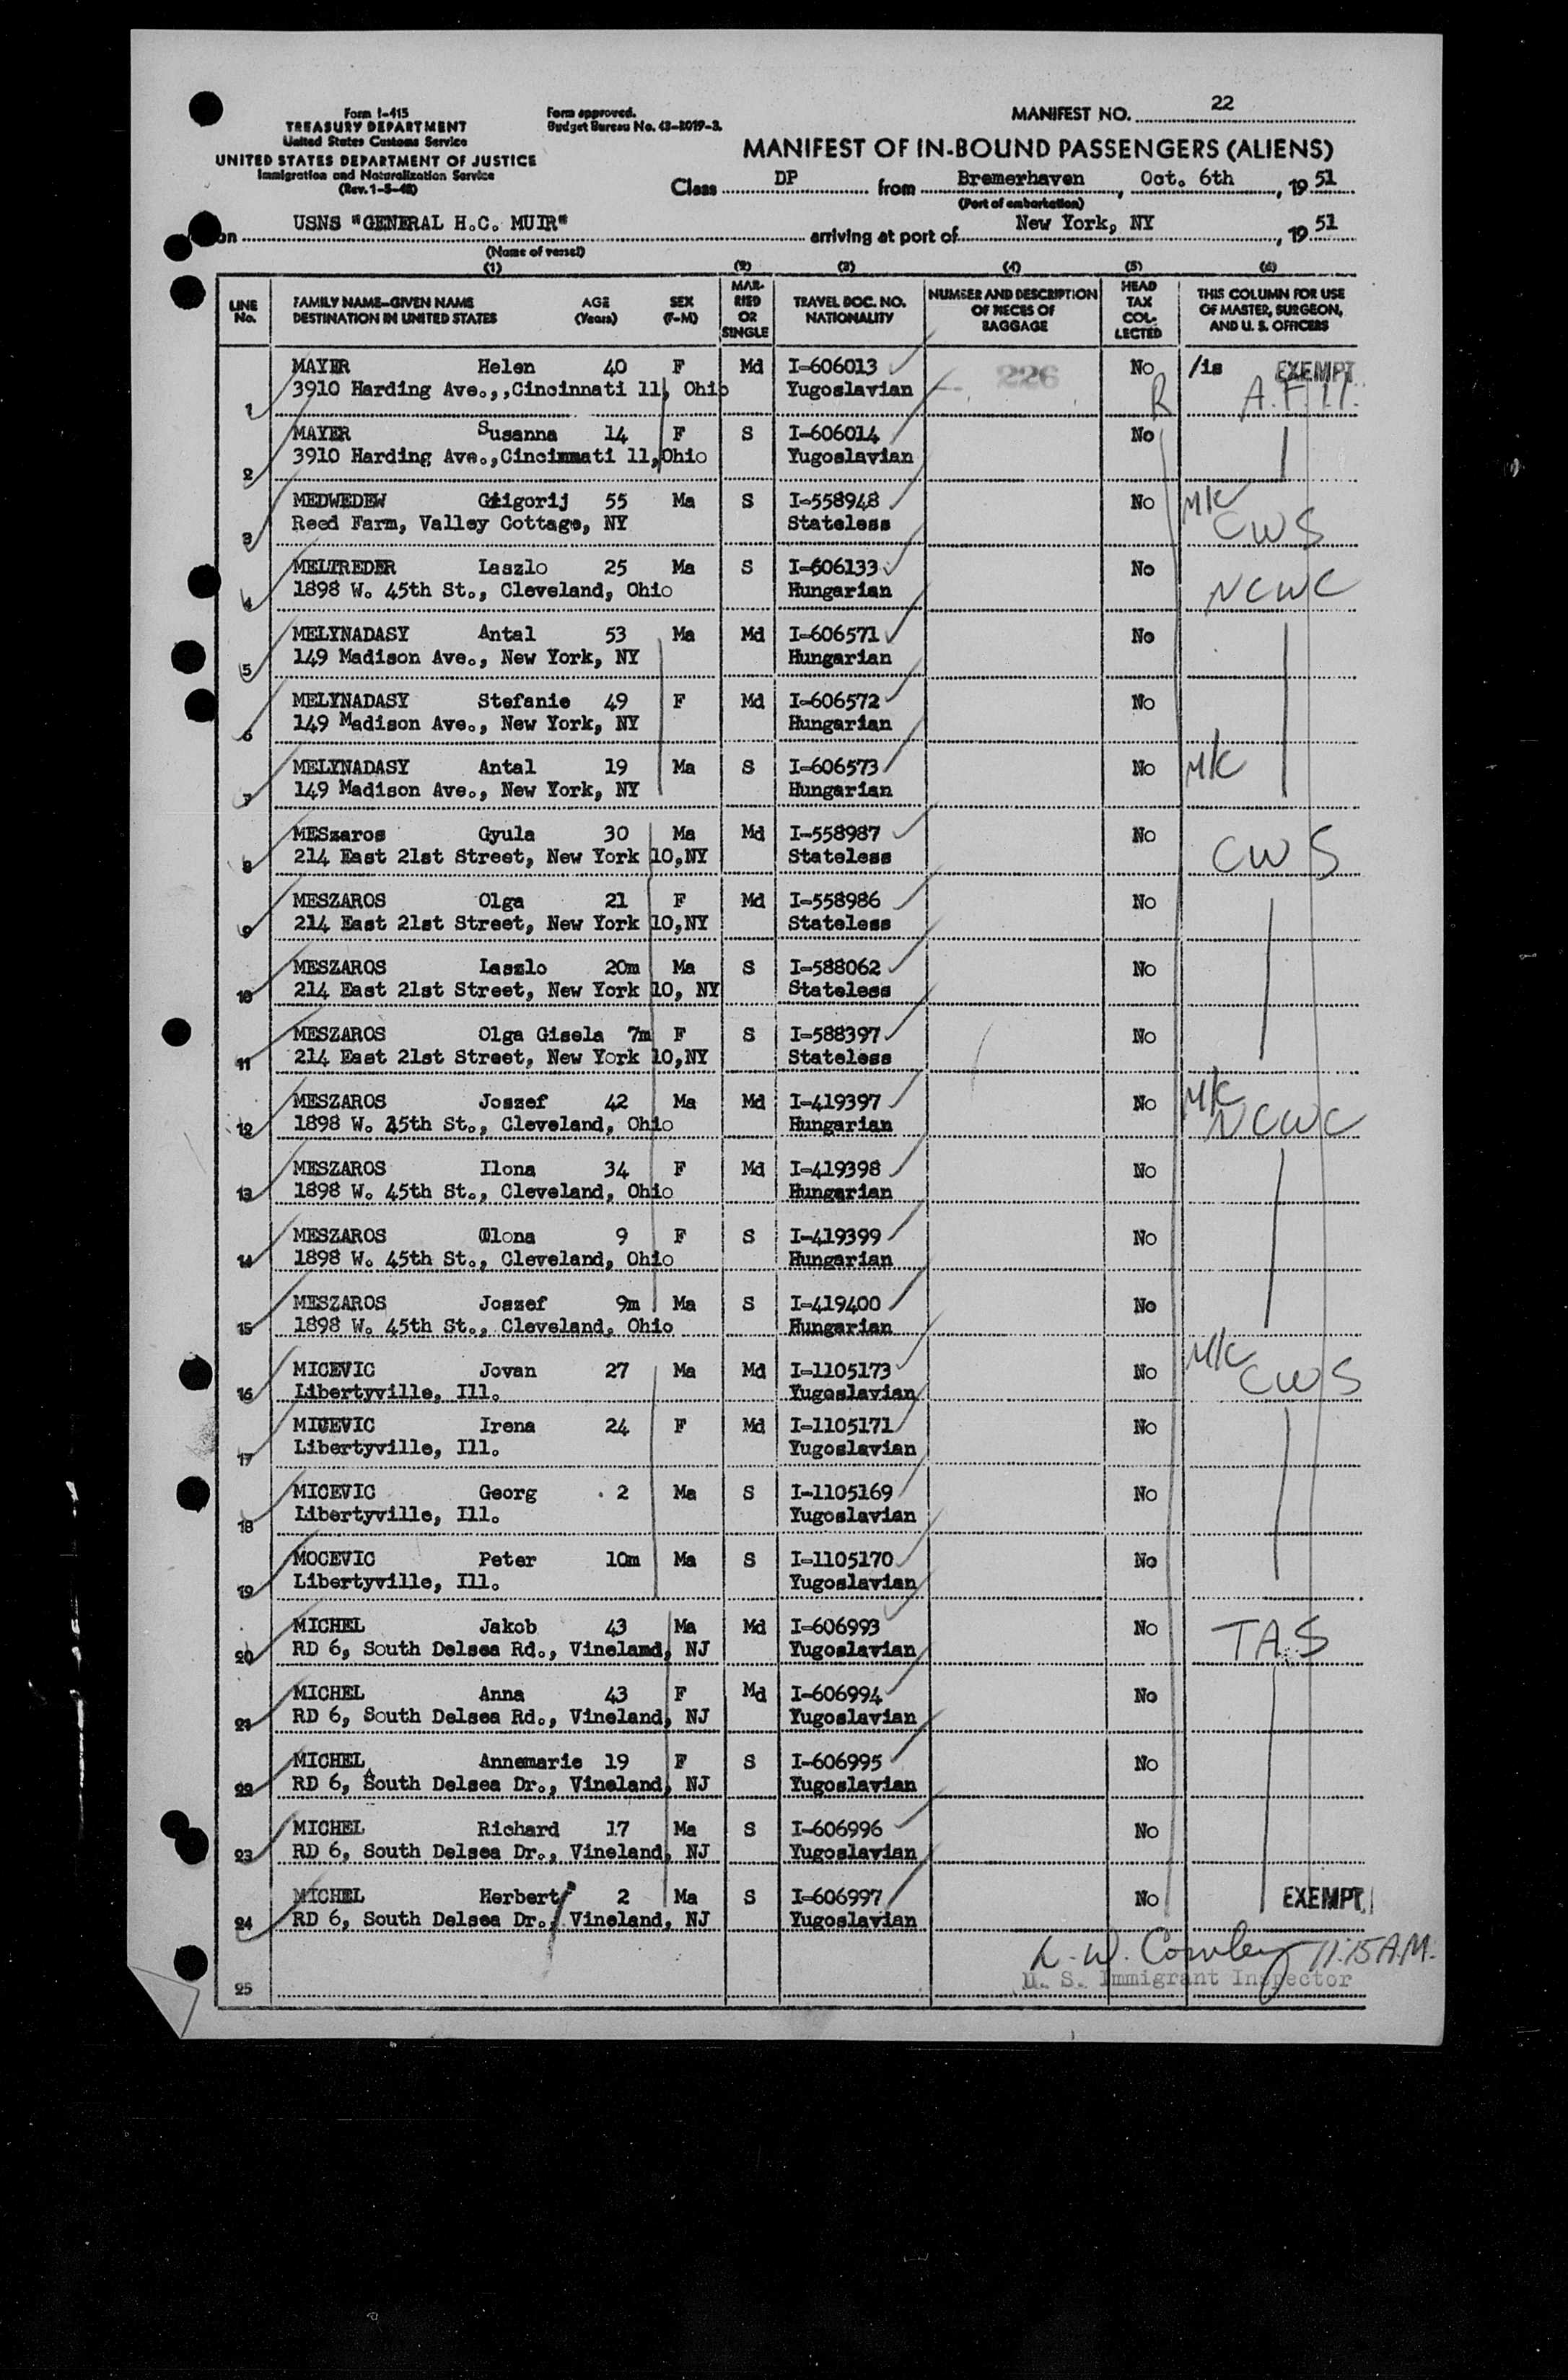 Form I-415
TREASURY DEPARTMENT
United States Customs Service
UNITED STATES DEPARTMENT OF JUSTICE
Immigration and Naturalization Service
(Rev. 1-5-48)
Form approved.
Budget Bureau No. 43-R019-3.
MANIFEST NO. 22
MANIFEST OF IN-BOUND PASSENGERS (ALIENS)
Class DP from Bremerhaven, Oct. 6th, 19 51
(Port of embarkation)
on USNS "GENERAL H.C. MUIR" arriving at port of New York, NY, 19 51
(Name of vessel)
(1) (2) (3) (4) (5) (6)
LINE No. FAMILY NAME—GIVEN NAME DESTINATION IN UNITED STATES AGE (Years) SEX (F-M) MARRIED OR SINGLE TRAVEL DOC. NO. NATIONALITY NUMBER AND DESCRIPTION OF PIECES OF BAGGAGE HEAD TAX COLLECTED THIS COLUMN FOR USE OF MASTER, SURGEON, AND U. S. OFFICERS
MAYER Helen 40 F Md I-606013 226 No /is EXEMPT
1 3910 Harding Ave.,,Cincinnati 11, Ohio Yugoslavian R A.F.H.
MAYER Susanna 14 F S I-606014 No
2 3910 Harding Ave.,Cincinnati 11,Ohio Yugoslavian
MEDWEDEW Grigorij 55 Ma S I-558948 No MK
3 Reed Farm, Valley Cottage, NY Stateless CWS
MELTREDER Laszlo 25 Ma S I-606133 No
4 1898 W. 45th St., Cleveland, Ohio Hungarian NCWC
MELYNADASY Antal 53 Ma Md I-606571 No
5 149 Madison Ave., New York, NY Hungarian
MELYNADASY Stefanie 49 F Md I-606572 No
6 149 Madison Ave., New York, NY Hungarian
MELYNADASY Antal 19 Ma S I-606573 No MK
7 149 Madison Ave., New York, NY Hungarian
MESzaros Gyula 30 Ma Md I-558987 No
8 214 East 21st Street, New York 10,NY Stateless CWS
MESZAROS Olga 21 F Md I-558986 No
9 214 East 21st Street, New York 10,NY Stateless
MESZAROS Laszlo 20m Ma S I-588062 No
10 214 East 21st Street, New York 10, NY Stateless
MESZAROS Olga Gisela 7m F S I-588397 No
11 214 East 21st Street, New York 10,NY Stateless
MESZAROS Joszef 42 Ma Md I-419397 No MK
12 1898 W. 45th St., Cleveland, Ohio Hungarian NCWC
MESZAROS Ilona 34 F Md I-419398 No
13 1898 W. 45th St., Cleveland, Ohio Hungarian
MESZAROS Ilona 9 F S I-419399 No
14 1898 W. 45th St., Cleveland, Ohio Hungarian
MESZAROS Joszef 9m Ma S I-419400 No
15 1898 W. 45th St., Cleveland, Ohio Hungarian
MICEVIC Jovan 27 Ma Md I-1105173 No MK
16 Libertyville, Ill. Yugoslavian CWS
MICEVIC Irena 24 F Md I-1105171 No
17 Libertyville, Ill. Yugoslavian
MICEVIC Georg 2 Ma S I-1105169 No
18 Libertyville, Ill. Yugoslavian
MOCEVIC Peter 10m Ma S I-1105170 No
19 Libertyville, Ill. Yugoslavian
MICHEL Jakob 43 Ma Md I-606993 No TAS
20 RD 6, South Delsea Rd., Vineland, NJ Yugoslavian
MICHEL Anna 43 F Md I-606994 No
21 RD 6, South Delsea Rd., Vineland, NJ Yugoslavian
MICHEL Annemarie 19 F S I-606995 No
22 RD 6, South Delsea Dr., Vineland, NJ Yugoslavian
MICHEL Richard 17 Ma S I-606996 No
23 RD 6, South Delsea Dr., Vineland, NJ Yugoslavian
MICHEL Herbert 2 Ma S I-606997 No EXEMPT
24 RD 6, South Delsea Dr., Vineland, NJ Yugoslavian
L. W. Conley 11:15 A.M.
25 U. S. Immigrant Inspector